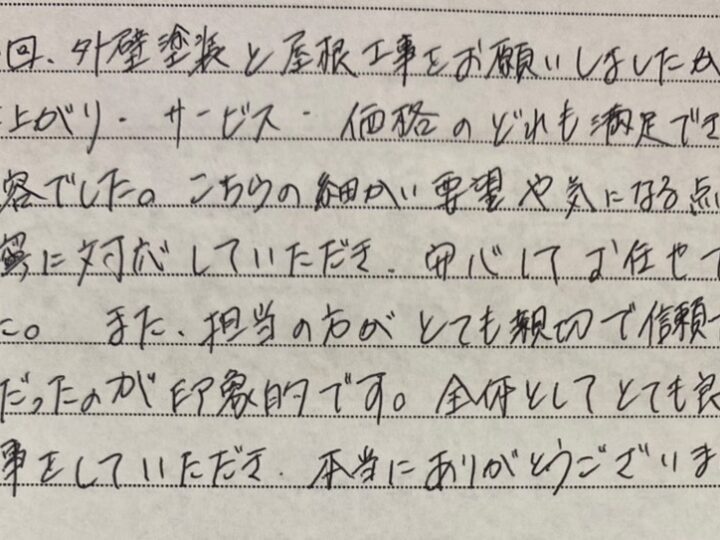 回、外壁塗装と屋根工事をお願いしましたが
上がり・サービス・価格のどれも満足でき
容でした。こちらの細かい要望や気になる点
寧に対応していただき、安心してお任せで
た。 また、担当の方がとても親切で信頼で
だったのが印象的です。全体としてとても良
事をしていただき、本当にありがとうございま